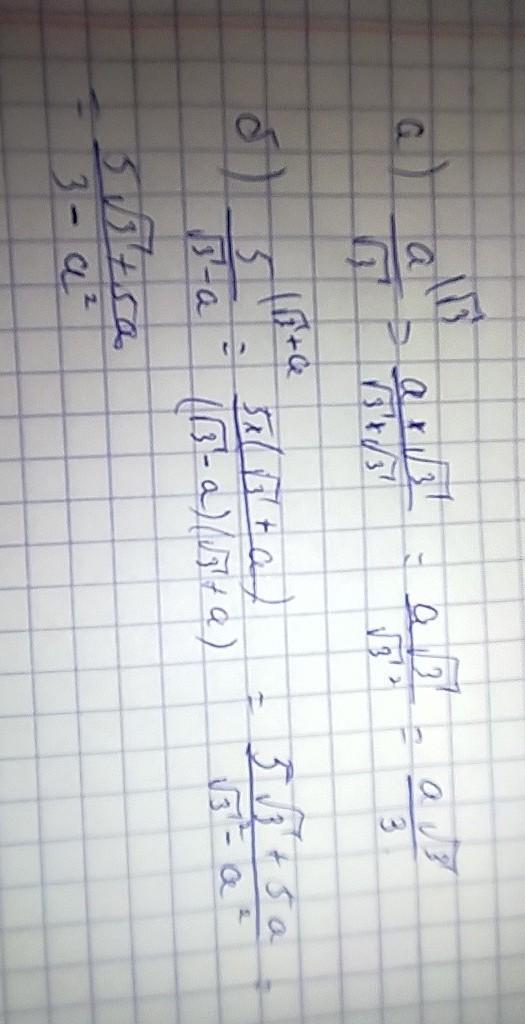 а) a/√3 |√3 = a×√3/√3×√3 = a√3/√3² = a√3/3
б) 5/√3-a |√3+a = 5×(√3+a)/(√3-a)(√3+a) = 5√3+5a/√3²-a² =
= 5√3+5a/3-a²